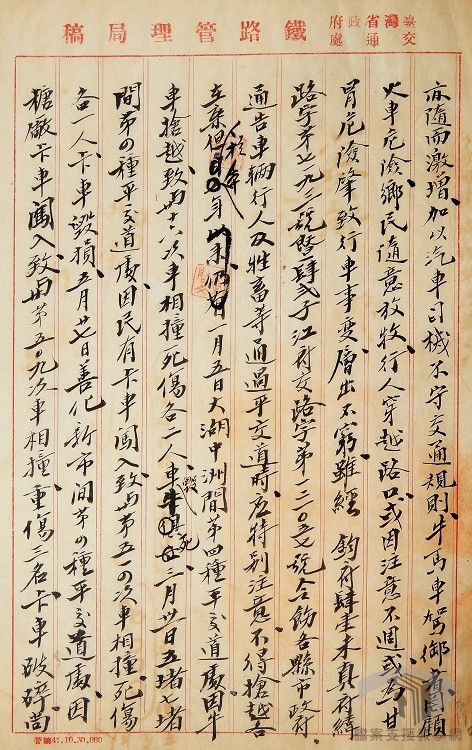 臺灣省政府交通處鐵路管理局稿
亦隨而激增、加以汽車司機不守交通規則、牛馬車駕御者罔顧
火車危險、鄉民隨意放牧、行人穿越路口、或因注意不週、或為甘
冒危險、肇致行車事變、層出不窮、雖經 鈞府肆壹未真府緯
路字第七九三一號暨肆弍子江府交路字第一二〇五七號令飭各縣市政府、
通告車輛行人及牲畜等通過平交道時、應特別注意、不得搶越各
在案、但年仍有一月五日大湖中洲間第四種平交道處、因牛
車搶越、致與十六次車相撞、死傷各一人、車毀牛死、三月廿日五堵堵
間第四種平交道處、因民有卡車闖入、致與第五一四次車相撞、死傷
各一人、卡車毀損、五月廿七日善化新市間第四種平交道處、因
糖廠卡車闖入、致與第五〇九次車相撞、重傷三名、卡車破碎、尚
41.10.30,000
檔案支援教學網